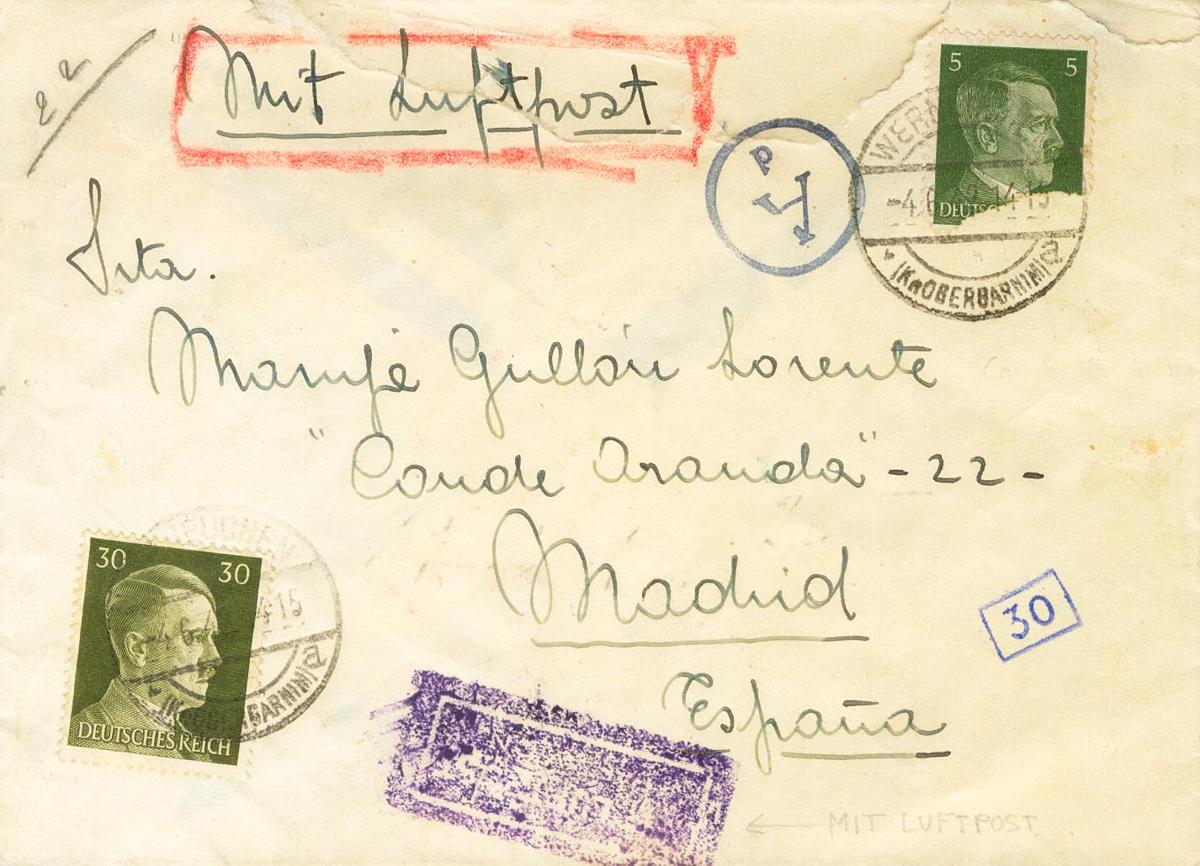 22
Mit Luftpost
5 5
DEUTSC
P
-4.6. 14-15
(KR OBERBARNIM) a
Srta.
Maruja Gullón Lorente
"Conde Aranda" - 22 -
Madrid
España
30
30 30
DEUTSCHES REICH
WERNEUCHEN
4-15
(KR OBERBARNIM) a
MIT LUFTPOST